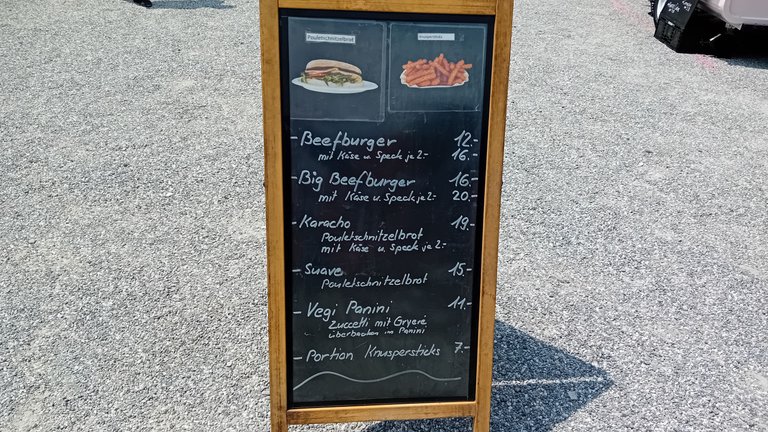 Pouletschnitzelbrot
Knuspersticks
- Beefburger 12.-
mit Käse u. Speck je 2.- 16.-
- Big Beefburger 16.-
mit Käse u. Speck je 2.- 20.-
- Karacho 19.-
Pouletschnitzelbrot
mit Käse u. Speck je 2.-
- Suave 15.-
Pouletschnitzelbrot
- Vegi Panini 11.-
Zuccetti mit Gryeré
überbacken im Panini
- Portion Knuspersticks 7.-